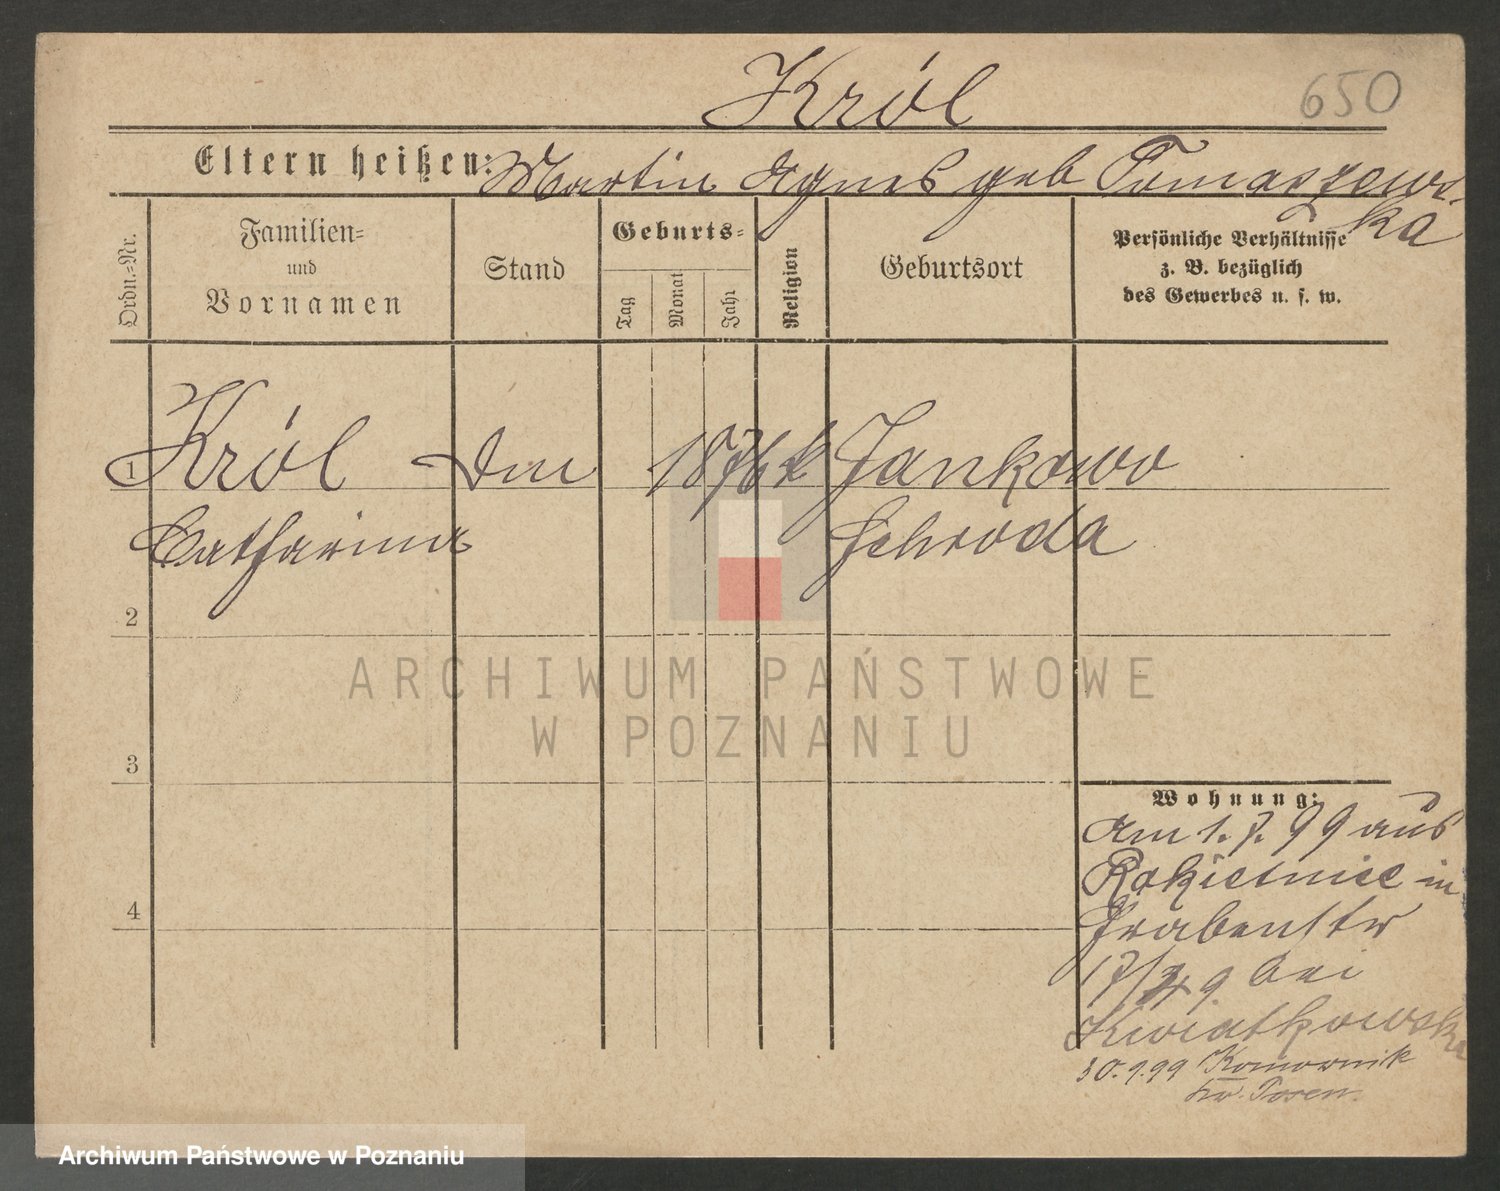 Król
650
Eltern heißen: Martin Agnes geb Tomaszews-
ka
Ordn.-Nr.
Familien-
und
Vornamen
Stand
Geburts-
Tag
Monat
Jahr
Religion
Geburtsort
Persönliche Verhältnisse
z. B. bezüglich
des Gewerbes u. s. w.
1 Król 1876 k Jankowo
Catharina Schroda
2
3
4
Wohnung:
Am 1. 7. 99 aus
Rokietnice in
Grabenstr
bei
Kwiatkowski
30.9.99 Komornik
Kr. Posen.
ARCHIWUM PAŃSTWOWE
W POZNANIU
Archiwum Państwowe w Poznaniu